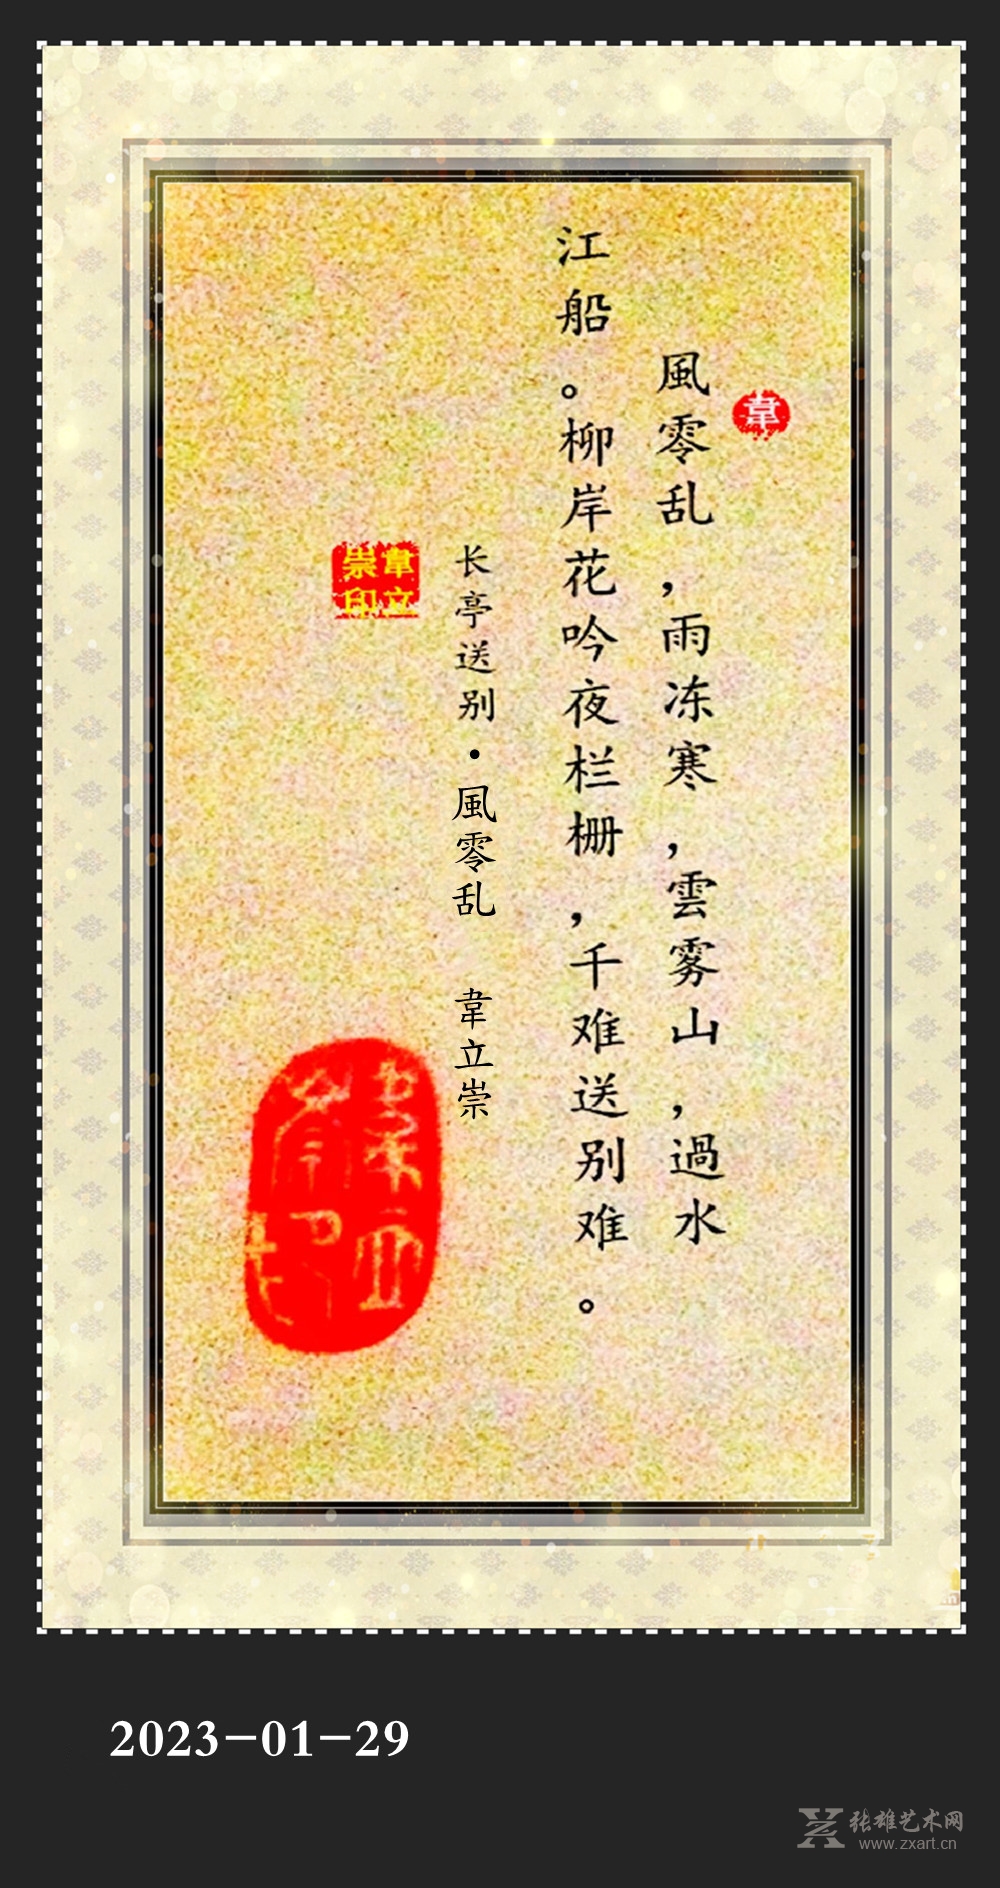 韋
風零乱，雨冻寒，雲雾山，過水
江船。柳岸花吟夜栏栅，千难送别难。
长亭送别·風零乱 韋立崇
韋立
崇印
2023-01-29
张雄艺术网
www.zxart.cn